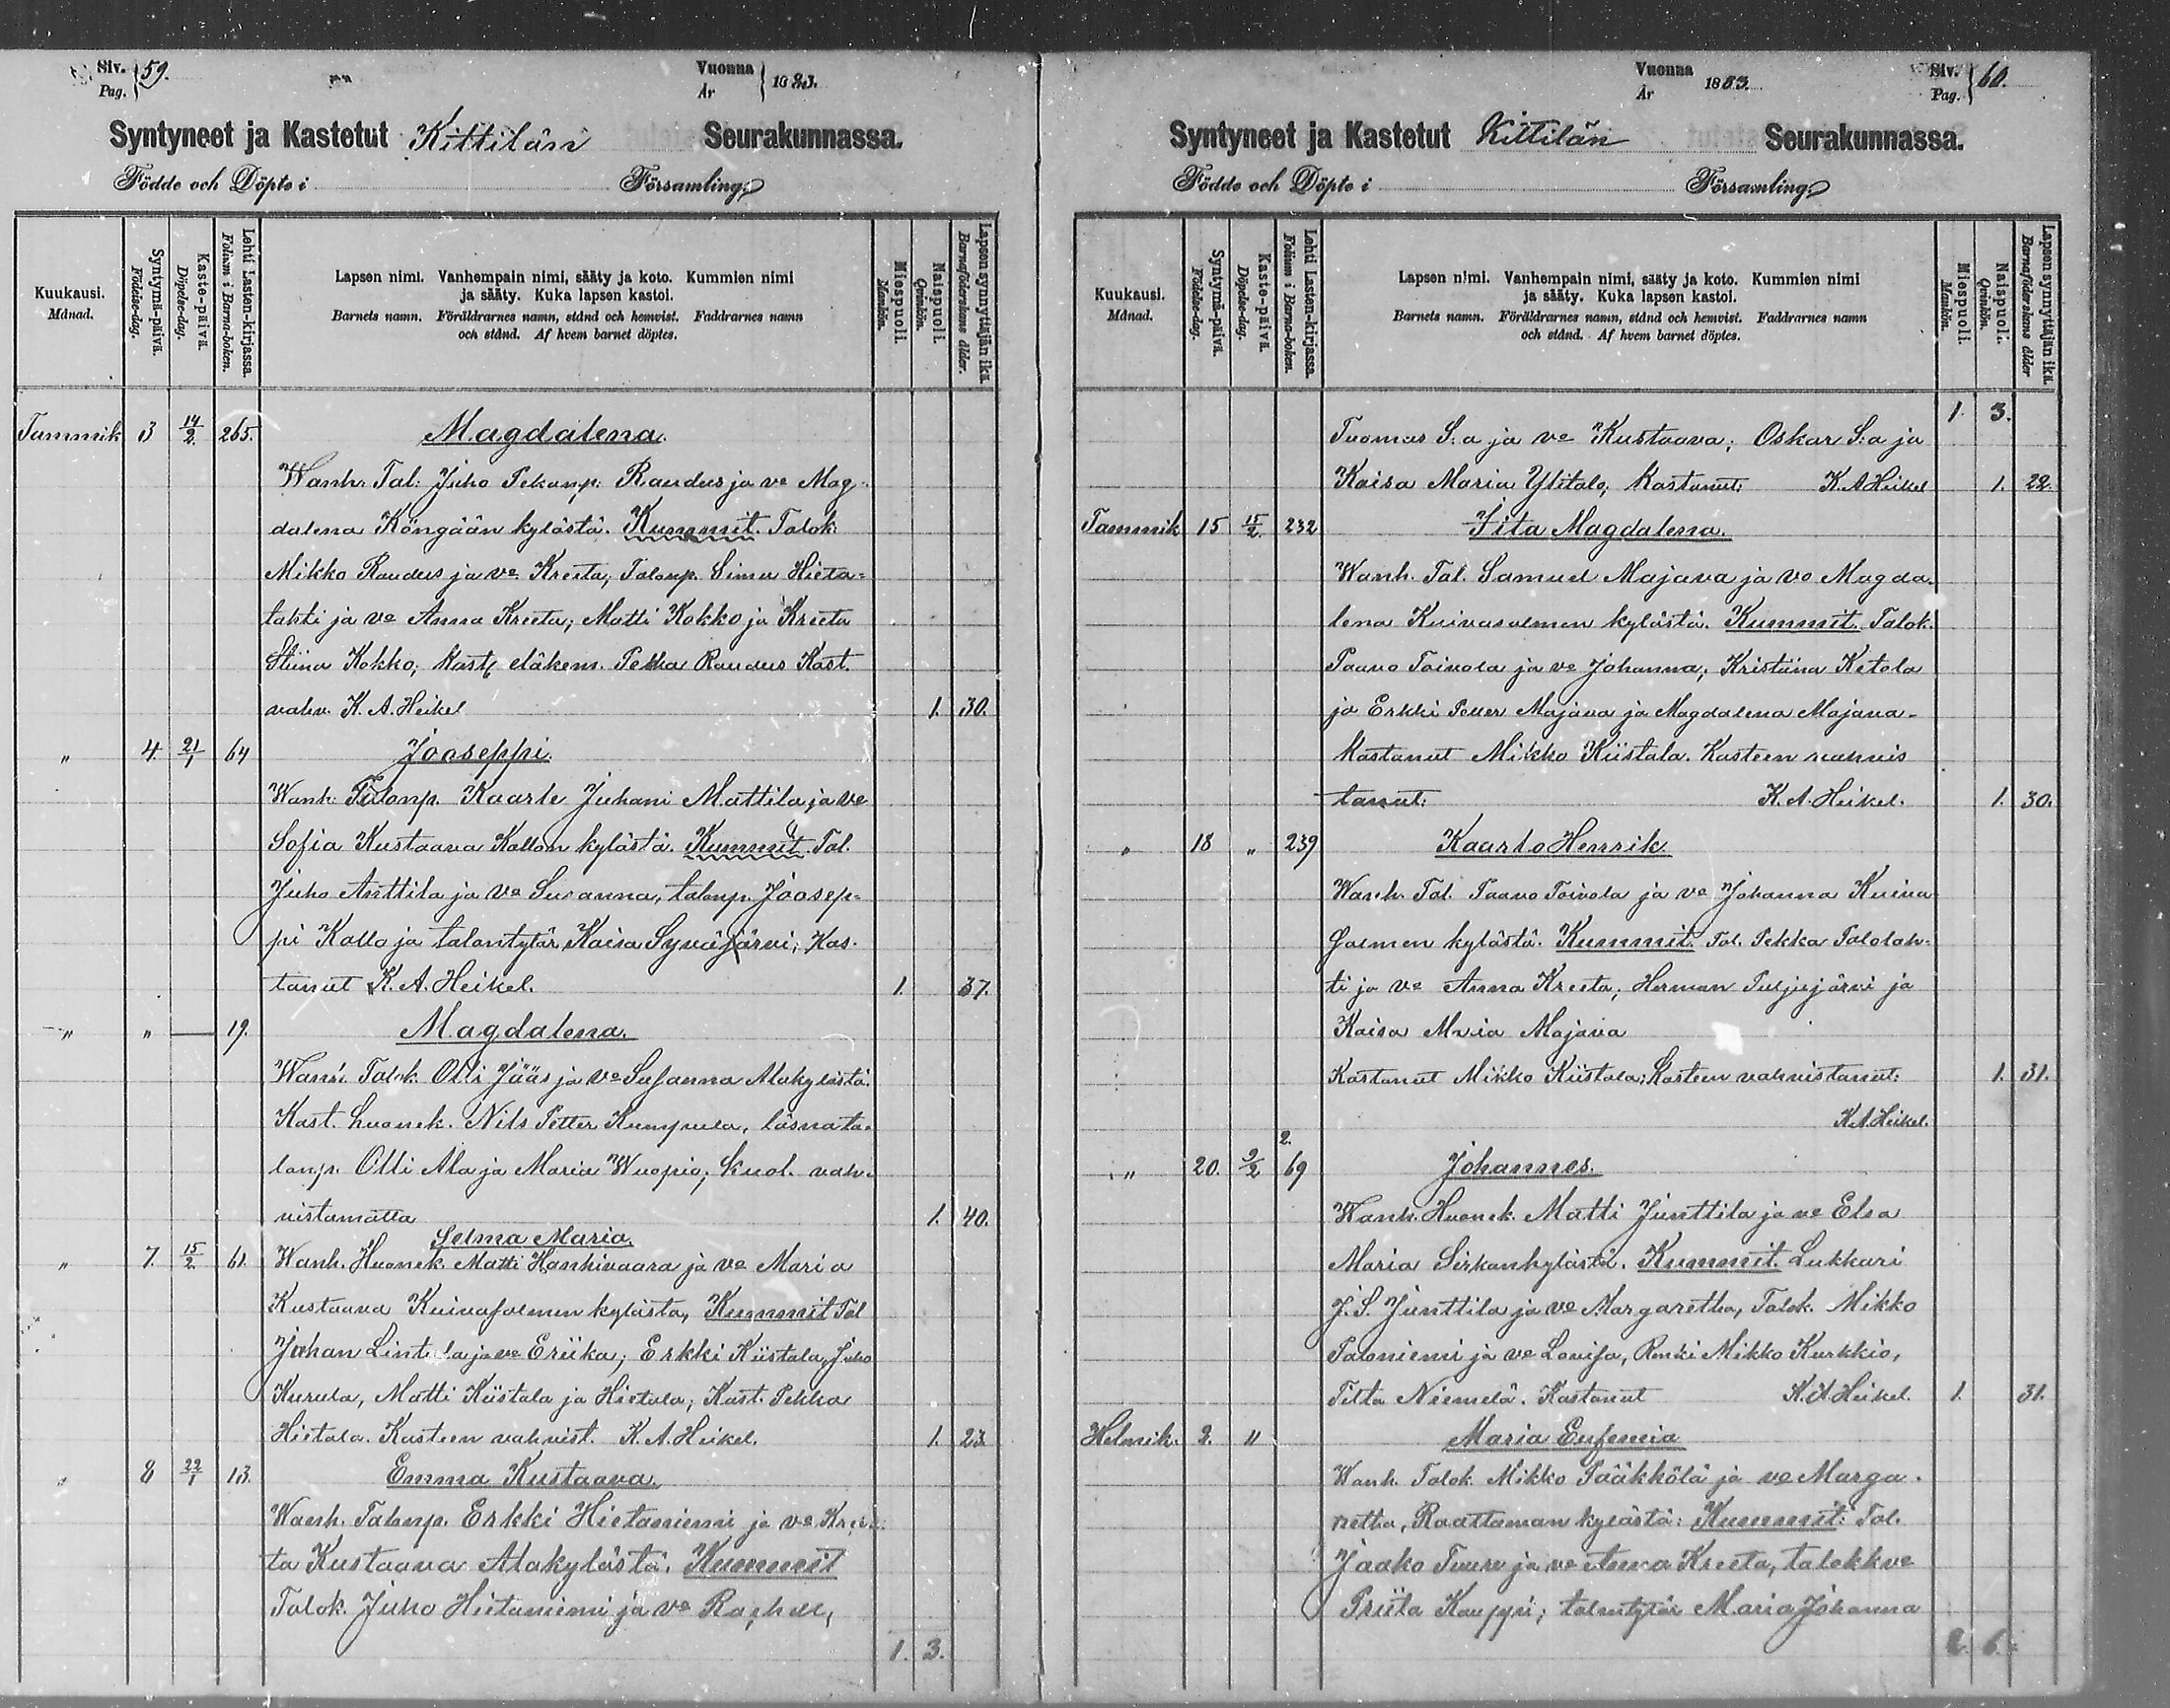 Siv. Pag. 59.
Vuonna År 1883.
Syntyneet ja Kastetut Kittilän Seurakunnassa.
Födde och Döpte i Församling.
Kuukausi. Månad.
Syntymä-päivä. Födelse-dag.
Kaste-päivä. Döpelse-dag.
Lehti Lasten-kirjassa. Folium i Barna-boken.
Lapsen nimi. Vanhempain nimi, sääty ja koto. Kummien nimi
ja sääty. Kuka lapsen kastoi.
Barnets namn. Föräldrarnes namn, stånd och hemvist. Faddrarnes namn
och stånd. Af hvem barnet döptes.
Miespuoli. Mankön.
Naispuoli. Qvinkön.
Lapsen synnyttäjän ikä. Barnaföderskans ålder.
Tammik 3 14/2 265. Magdalena.
Wanh. Tal. Juho Pekanp. Raudus ja ve Mag-
dalena Köngään kylästä. Kummit. Talok.
Mikko Raudus ja ve Kreeta, Talonp. Simu Hieta-
lahti ja ve Anna Kreeta; Matti Kokko ja Kreeta
Stiina Kokko; Kast. eläkem. Pekka Raudus Kast.
vahv. K. A. Heikel 1. 30.
" 4. 21/1 64 Jooseppi.
Wanh. Talonp. Kaarle Juhani Mattila ja ve
Sofia Kustaava Kallon kylästä. Kummit. Tal.
Juho Anttila ja ve Susanna, talonp. Joosep-
pi Kallo ja talontytär Kaisa Syväjärvi; Kas-
tanut K. A. Heikel. 1. 37.
" " — 19. Magdalena.
Wanh. Talok. Olli Jääs ja ve Susanna Alakylästä.
Kast. huonek. Nils Petter Kumpula, läsnä ta-
lonp. Olli Ala ja Maria Wuopio; kuol. vah-
vistamatta 1. 40.
Selma Maria.
" 7. 15/2 61. Wanh. Huonek. Matti Hanhivaara ja ve Maria
Kustaava Kuivasalmen kylästä, Kummit Tal
Johan Lintula ja ve Eriika; Erkki Kiistala, Juho
Kurula, Matti Kiistala ja Hietala; Kast. Pekka
Hietala. Kasteen vahvist. K. A. Heikel. 1. 23
" 8 22/1 13. Emma Kustaava.
Wanh. Talonp. Erkki Hietaniemi ja ve Kree-
ta Kustaava Alakylästä. Kummit
Talok. Juho Hietaniemi ja ve Rachel,
1. 3.
Vuonna År 1883.
Siv. Pag. 60.
Syntyneet ja Kastetut Kittilän Seurakunnassa.
Födde och Döpte i Församling.
Kuukausi. Månad.
Syntymä-päivä. Födelse-dag.
Kaste-päivä. Döpelse-dag.
Lehti Lasten-kirjassa. Folium i Barna-boken.
Lapsen nimi. Vanhempain nimi, sääty ja koto. Kummien nimi
ja sääty. Kuka lapsen kastoi.
Barnets namn. Föräldrarnes namn, stånd och hemvist. Faddrarnes namn
och stånd. Af hvem barnet döptes.
Miespuoli. Mankön.
Naispuoli. Qvinkön.
Lapsen synnyttäjän ikä. Barnaföderskans ålder
1. 3.
Tuomas S:a ja ve Kustaava; Oskar S:a ja
Kaisa Maria Ylitalo; Kastanut: K. A Heikel 1. 22.
Tammik 15 15/2. 232 Iita Magdalena.
Wanh. Tal. Samuel Majava ja ve Magda-
lena Kuivasalmen kylästä. Kummit. Talok.
Paavo Toivola ja ve Johanna; Kristiina Ketola
ja Erkki Petter Majava ja Magdalena Majava-
Kastanut Mikko Kiistala. Kasteen vahvis
tanut: K. A. Heikel. 1. 30.
" 18 " 239 Kaarlo Henrik.
Wanh. Tal. Paavo Toivola ja ve Johanna Kuiva
salmen kylästä. Kummit. Tal. Pekka Talolah-
ti ja ve Anna Kreeta; Herman Puljujärvi ja
Kaisa Maria Majava
Kastanut Mikko Kiistala; Kasteen vahvistanut: 1. 31.
K. A. Heikel.
" 20. 9/2 2. 69 Johannes.
Wanh. Huonek. Matti Junttila ja ve Elsa
Maria Sirkankylästä. Kummit. Lukkari
J. S. Junttila ja ve Margaretha, Talok. Mikko
Paloniemi ja ve Lovisa, Renki Mikko Kurkkio,
Piita Niemelä. Kastanut K. A Heikel. 1. 31.
Helmik. 2. " Maria Eufemia
Wanh. Talok. Mikko Pääkkölä ja ve Marga-
retha, Raattaman kylästä: Kummit: Tal.
Jaako Tuuru ja ve Anna Kreeta, talokkve
Priita Kauppi; talontytär Maria Johanna
2. 6.